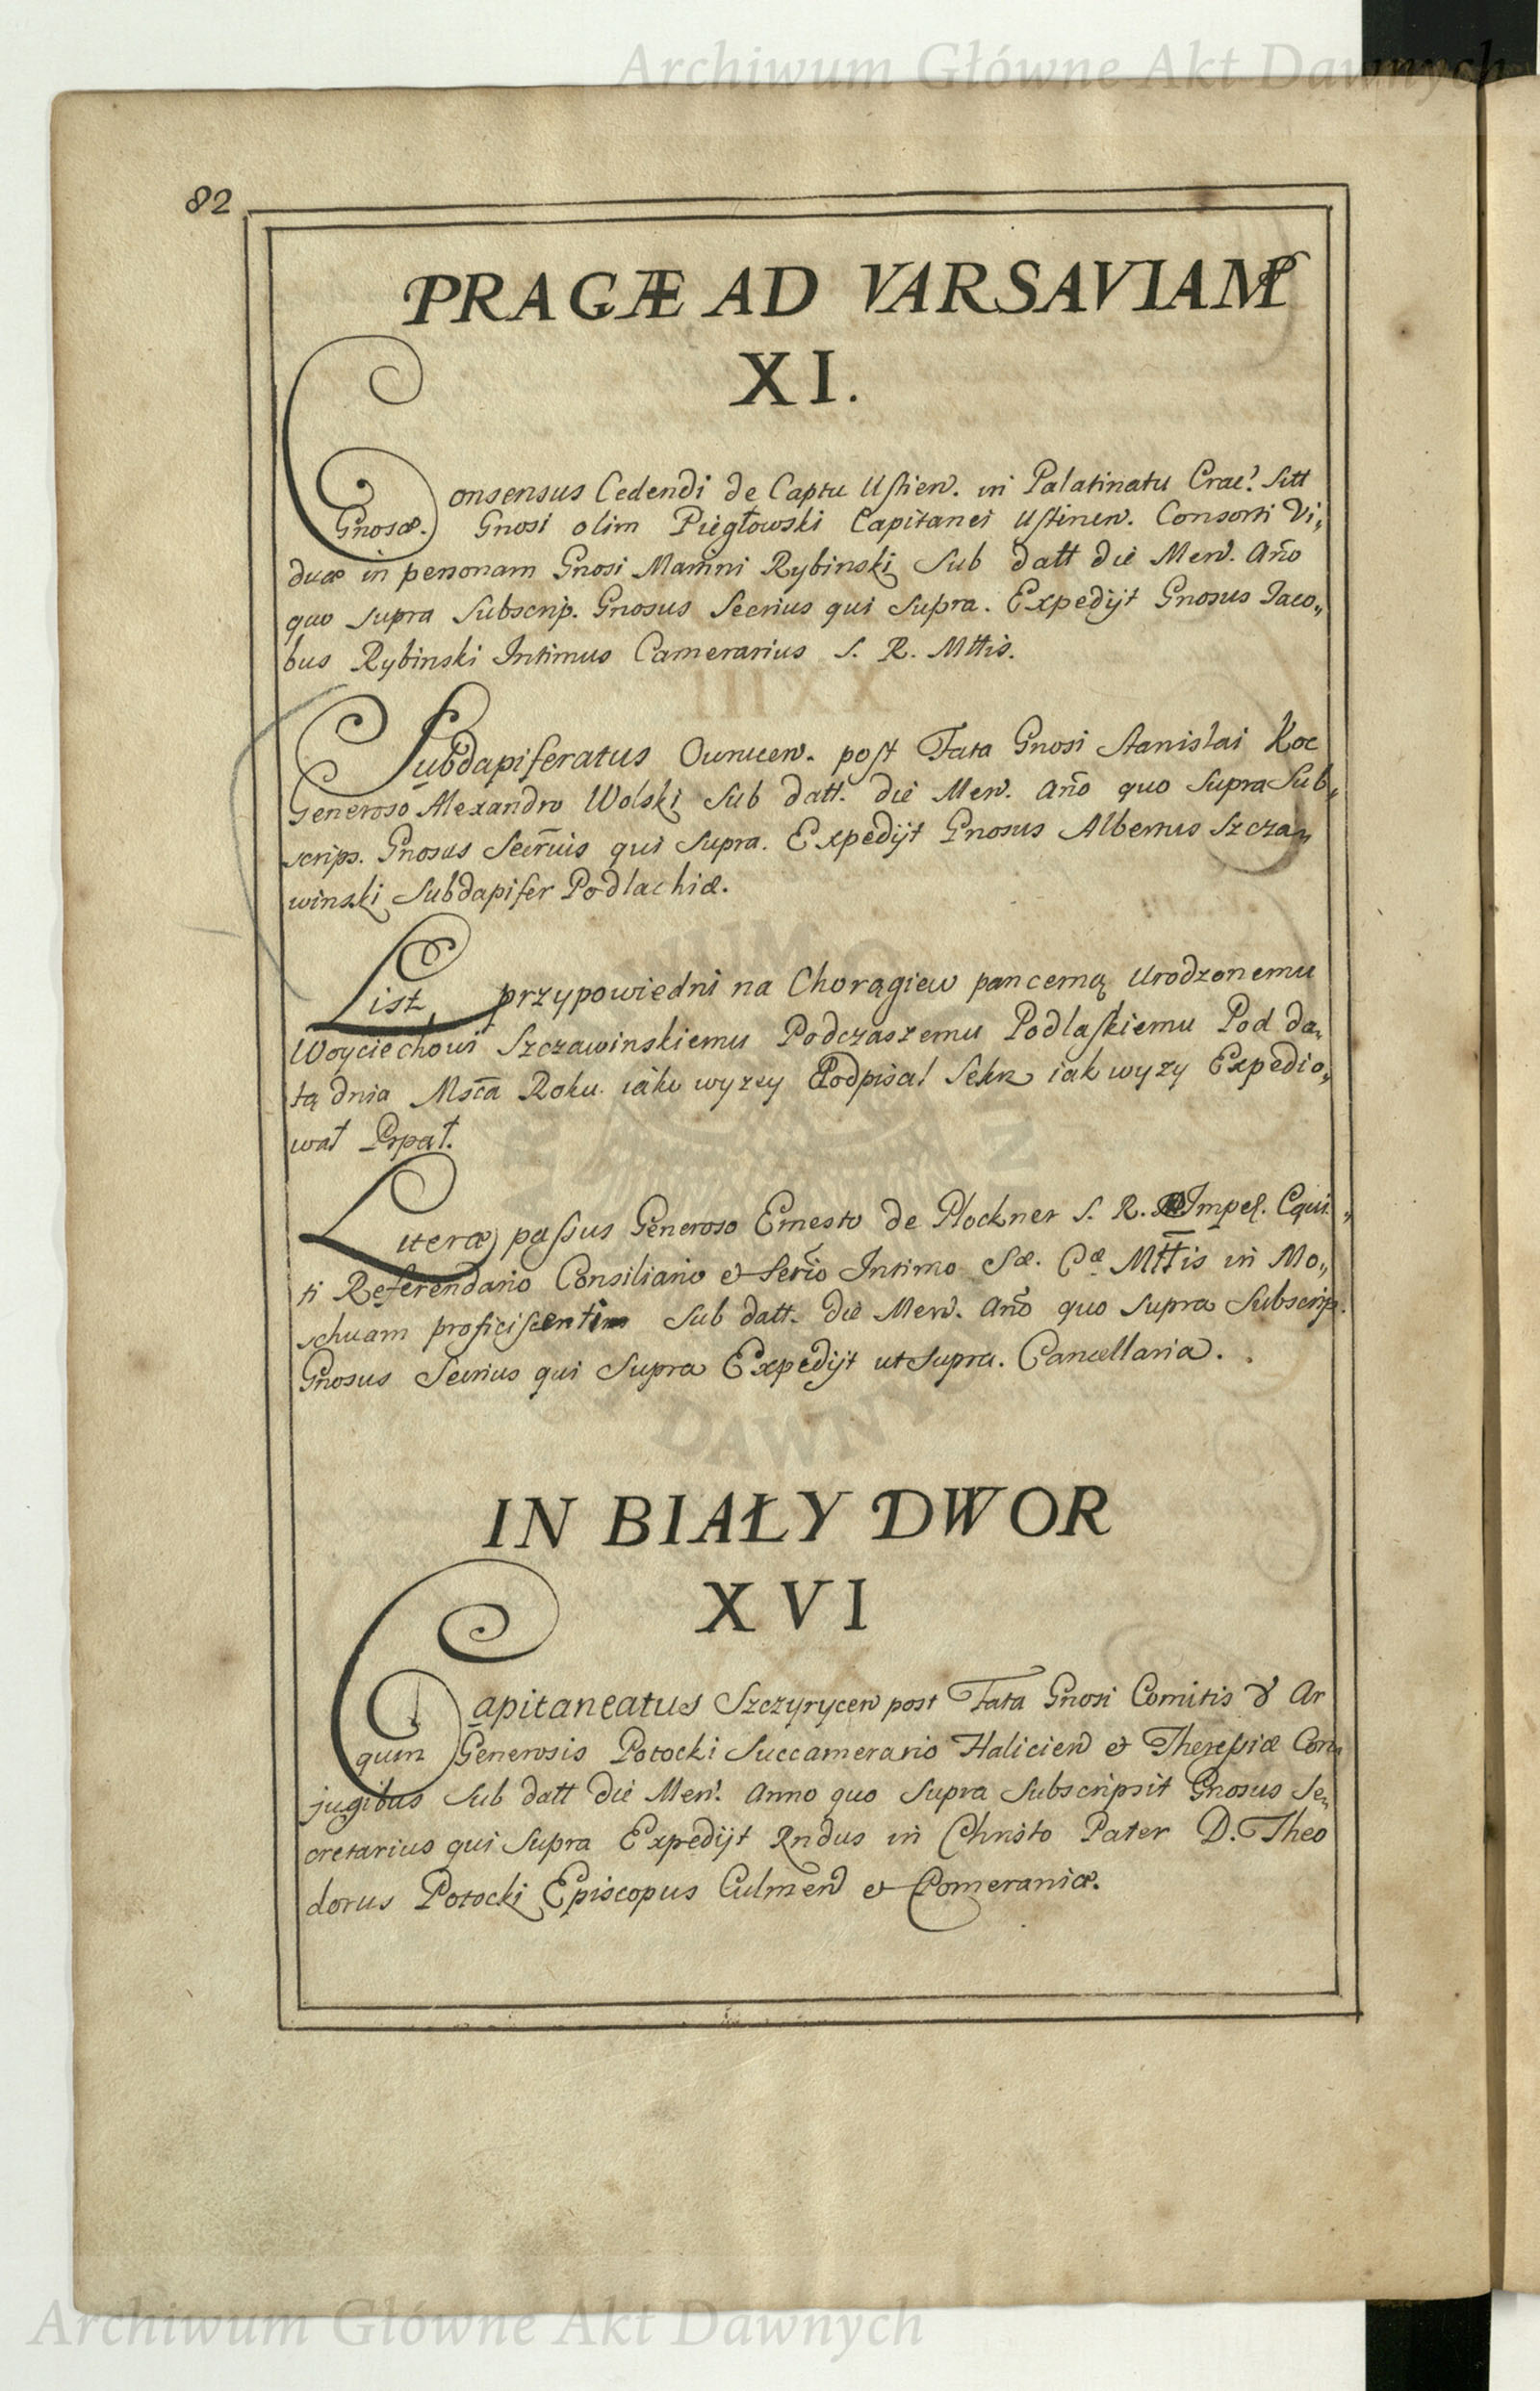 Archiwum Główne Akt Dawnych
82
PRAGÆ AD VARSAVIAM
XI.
Consensus Cedendi de Captu Ustien. in Palatinatu Crac. sitt
Gnosæ. Gnosi olim Piegłowski Capitanei Ustinen. Consorti Vi„
duæ in personam Gnosi Marini Rybinski sub datt die Men. Año
quo supra Subscrip. Gnosus Secrius qui supra. Expedijt Gnosus Jaco„
bus Rybinski Intimus Camerarius S. R. Mttis.
Subdapiferatus Owrucen. post Fata Gnosi Stanislai Koc
Generoso Alexandro Wolski sub datt. die Men. año quo supra Sub„
scrips. Gnosus Secrius qui supra. Expedijt Gnosus Albertus Szcza„
winski Subdapifer Podlachiæ.
List przypowiedni na Chorągiew pancerną Urodzonemu
Woyciechowi Szczawinskiemu Podczaszemu Podlaskiemu Pod da„
tą dnia Msca Roku iako wyzey Podpisał Sekr iak wyzy Expedio„
wał Prpat.
Literæ passus Generoso Ernesto de Plockner S. R. Imper. Equi„
ti Referendario Consiliario et Secrio Intimo Sæ. Cæ Mttis in Mo„
schuam proficiscenti sub datt. die Men. Año quo supra Subscrip.
Gnosus Secrius qui supra Expedijt ut supra. Cancellaria.
IN BIAŁY DWOR
XVI
Capitaneatus Szczyrycen post Fata Gnosi Comitis d Ar
quin Generosis Potocki Succamerario Halicien et Theressiæ Con„
jugibus sub datt die Men. Anno quo supra Subscripsit Gnosus Se„
cretarius qui supra Expedijt Rndus in Christo Pater D. Theo
dorus Potocki Episcopus Culmen et Pomeraniæ.
Archiwum Główne Akt Dawnych